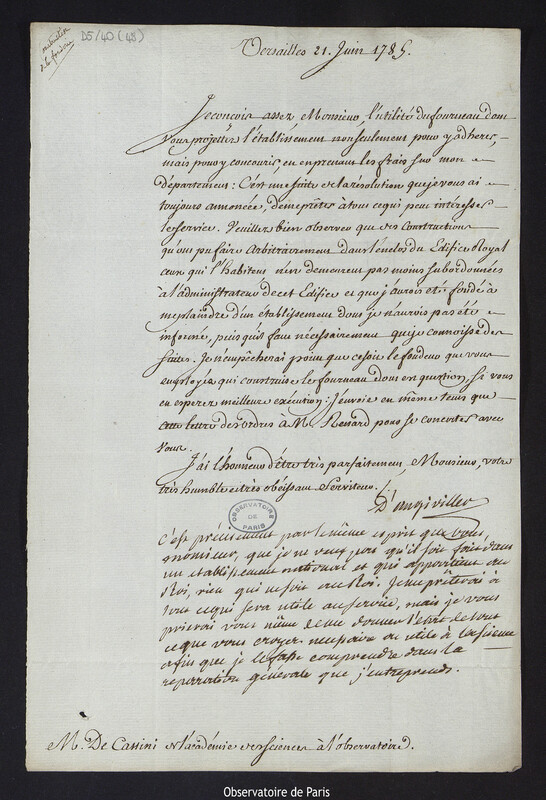 D5/40 (48)
Versailles 21. Juin 1785.
Je conçois assez, Monsieur, l'utilité du fourneau dont
vous projettez l'établissement non seulement pour y adherer,
mais pour y concourir, en en prenant les frais sur mon
département: C'est une suite de la résolution que je vous ai
toujours annoncée, de me prêter à tout ce qui peut intéresser
le service. Veuillez bien observer que des constructions
qu'on pu faire arbitrairement dans l'enclos du Edifice Royal
ceux qui l'habitent n'en demeurent pas moins subordonnées
à l'administrateur de cet Edifice et que j'aurois été fondé à
me plaindre d'un établissement dont je n'aurois pas été
informé, puis qu'il faut nécessairement que je connoisse des
suites. Je n'empêcherai point que ce soit le fondeur que vous
employez qui construise le fourneau dont en question, si vous
en esperez meilleure exécution: J'envoie en même tems que
cette lettre des ordres à M. Renard pour se concerter avec
vous.
J'ai l'honneur d'être très parfaitement, Monsieur, votre
très humble et très obéissant Serviteur.
D'angiviller
OBSERVATOIRE DE PARIS
C'est précisément par le même esprit que vous,
monsieur, que je ne veux pas qu'il soit fait dans
un etablissement national et qui appartient au
Roi, rien qui ne soit au Roi. Je me prêterai à
tout ce qui sera utile au service, mais je vous
prierai vous même de me donner l'etat de tout
ce que vous croyez necessaire ou utile à la science
afin que je le fasse comprendre dans la
reparation generale que j'entreprends.
M. De Cassini de l'académie des sciences à l'observatoire.
Observatoire de Paris